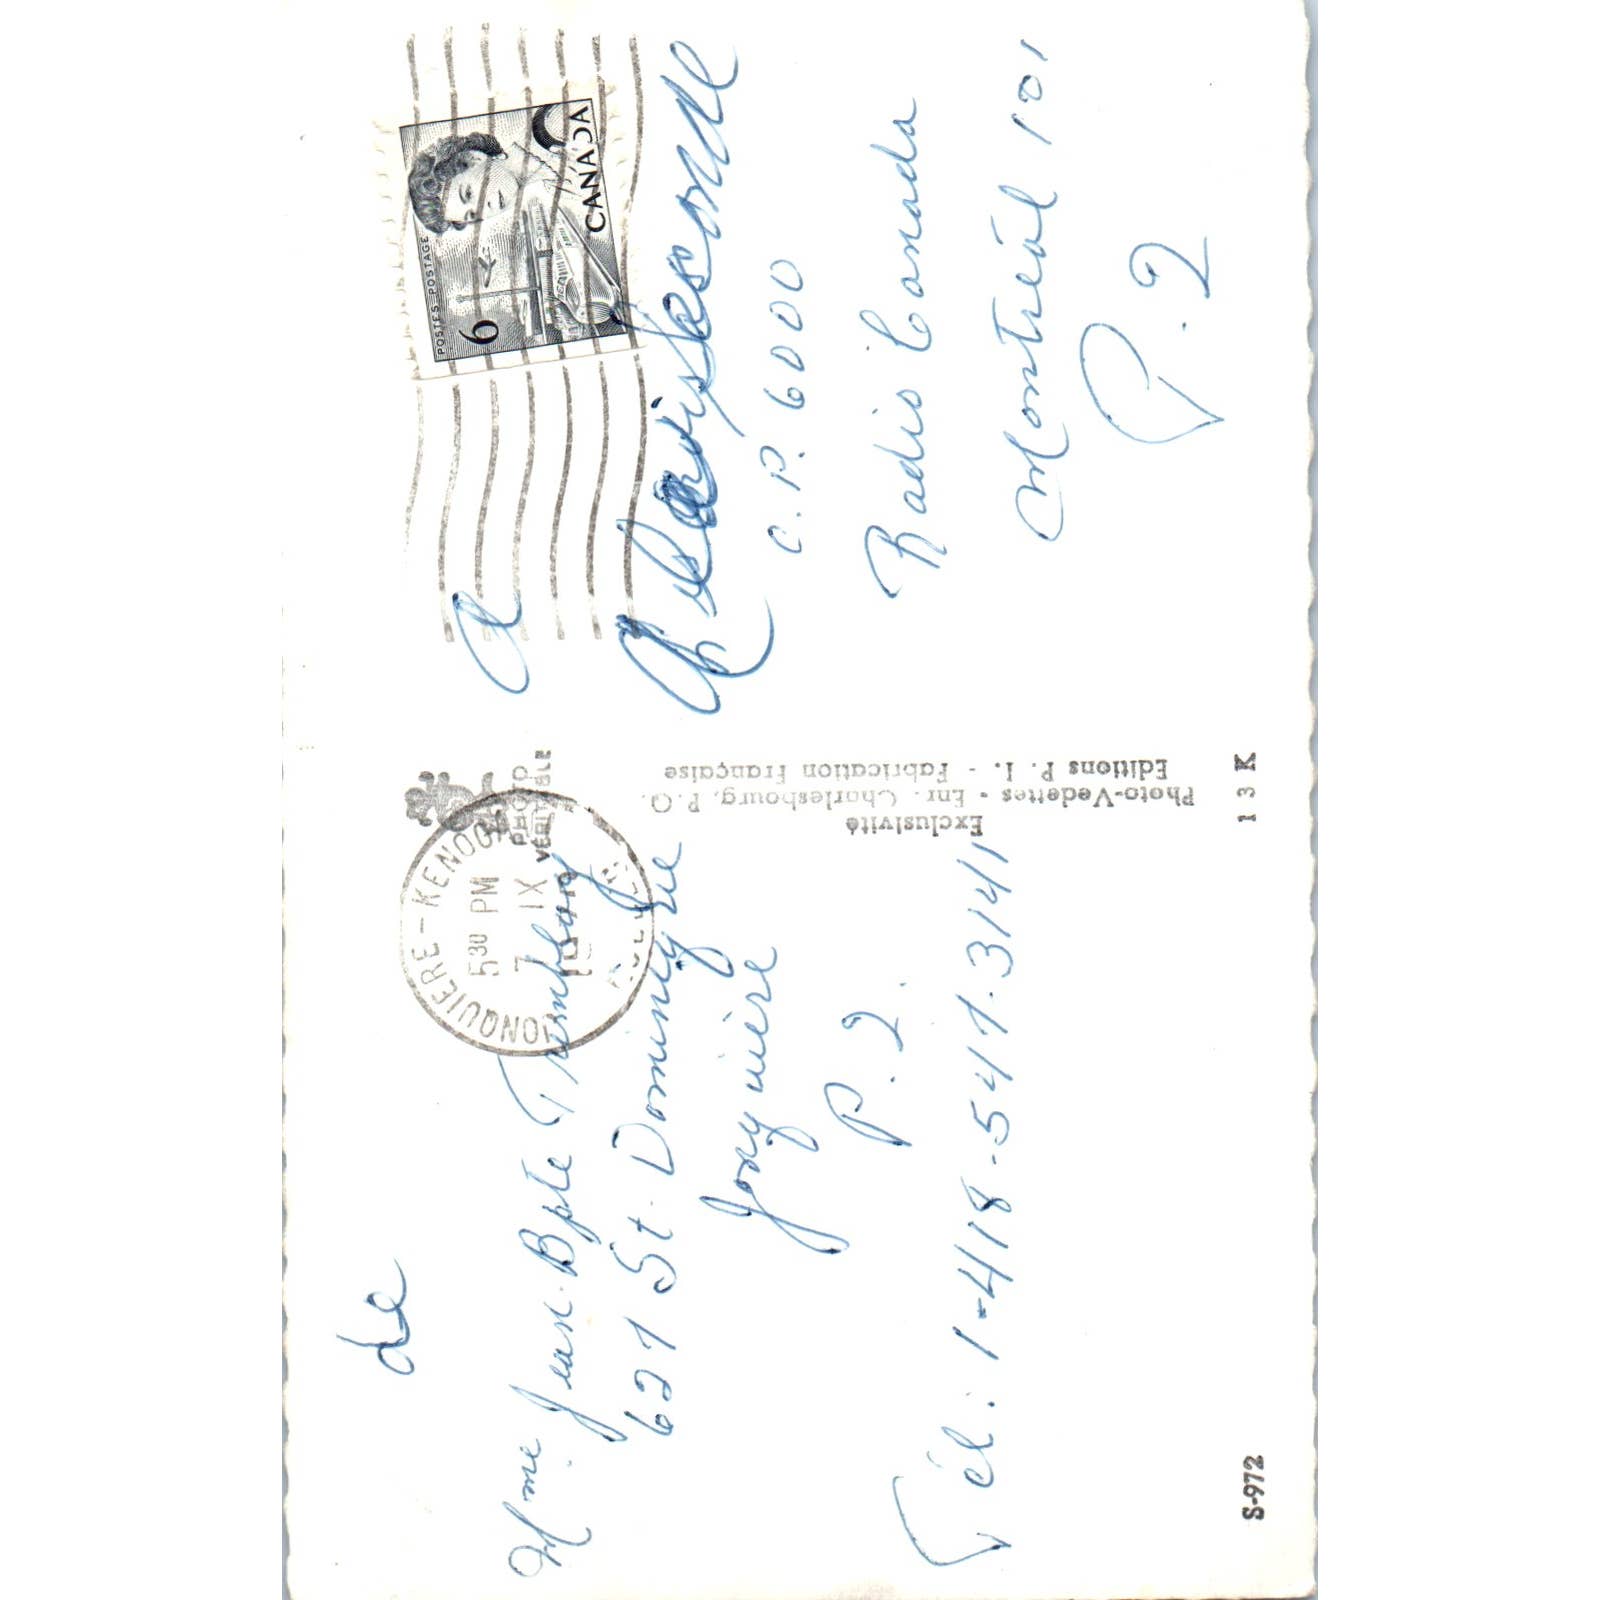 de
Mme Jean-Bpte Tremblay
627 St. Dominique
Jonquière
P. Q.
Tél.: 1-418-547.3141
S-972
JONQUIERE-KENOGAMI
5 30 PM
7 IX
PHOTO
VÉRITABLE
Exclusivité
Photo-Vedettes - Enr. Charlesbourg, P.Q.
Editions P. I. - Fabrication Française
13 K
POSTES POSTAGE
6
CANADA
A
C.P. 6000
Radio Canada
Montréal 101
P. Q